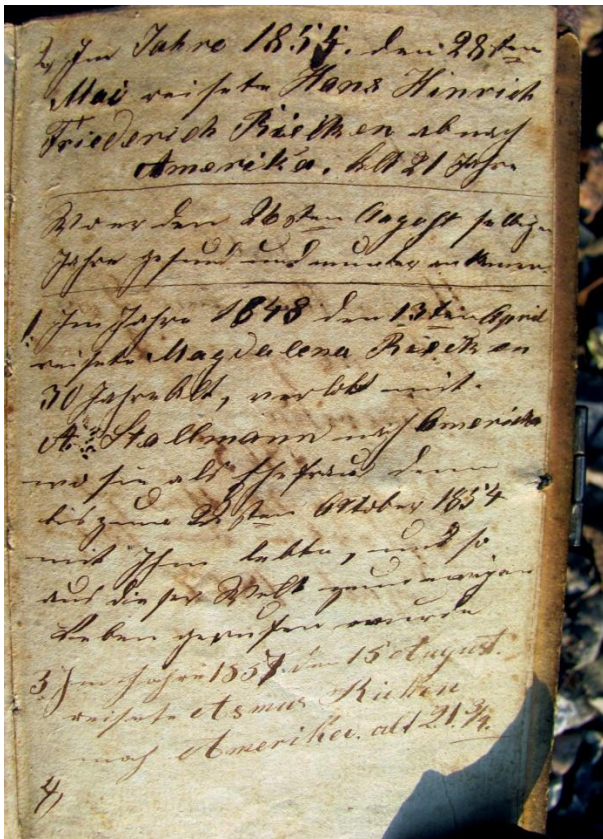 2, Im Jahre 1855. den 28sten
Mai reisete Hans Hinrich
Friederich Riecken ab nach
Amerika. Alt 21 Jahre
Wo er den 26sten Augost selbigen
Jahre gesund und munter ankam.
1, Im Jahre 1848 den 13ten April
reisete Magdalena Riecken
30 Jahre Alt, verlobt mit
A. Stallmann nach America
wo sie als Ehefrau denn
bis zum 22sten October 1854
mit Ihm lebte, und so
aus dieser Welt zum ewigen
Leben gerufen wurde
3, Im Jahre 1857. den 15 August.
reisete Asmus Riecken
nach Amerika. alt 21 3/4.
4,